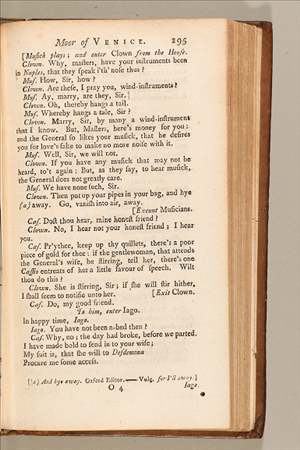 Moor of VENICE. 295
[Musick plays; and enter Clown from the House.
Clown. Why, masters, have your instruments been
in Naples, that they speak i'th' nose thus?
Mus. How, Sir, how?
Clown. Are these, I pray you, wind-instruments?
Mus. Ay, marry, are they, Sir.
Clown. Oh, thereby hangs a tail.
Mus. Whereby hangs a tale, Sir?
Clown. Marry, Sir, by many a wind-instrument
that I know. But, Masters, here's money for you:
and the General so likes your musick, that he desires
you for love's sake to make no more noise with it.
Mus. Well, Sir, we will not.
Clown. If you have any musick that may not be
heard, to't again: But, as they say, to hear musick,
the General does not greatly care.
Mus. We have none such, Sir.
Clown. Then put up your pipes in your bag, and hye
(a) away. Go, vanish into air, away.
[Exeunt Musicians.
Cas. Dost thou hear, mine honest friend?
Clown. No, I hear not your honest friend; I hear
you.
Cas. Pr'ythee, keep up thy quillets, there's a poor
piece of gold for thee: if the gentlewoman, that attends
the General's wife, be stirring, tell her, there's one
Cassio entreats of her a little favour of speech. Wilt
thou do this?
Clown. She is stirring, Sir; if she will stir hither,
I shall seem to notifie unto her. [Exit Clown.
Cas. Do, my good friend.
To him, enter Iago.
In happy time, Iago.
Iago. You have not been a-bed then?
Cas. Why, no; the day had broke, before we parted.
I have made bold to send in to your wife;
My suit is, that she will to Desdemona
Procure me some access.
[(a) And hye away. Oxford Editor.—— Vulg. for I'll away.]
O 4 Iago.